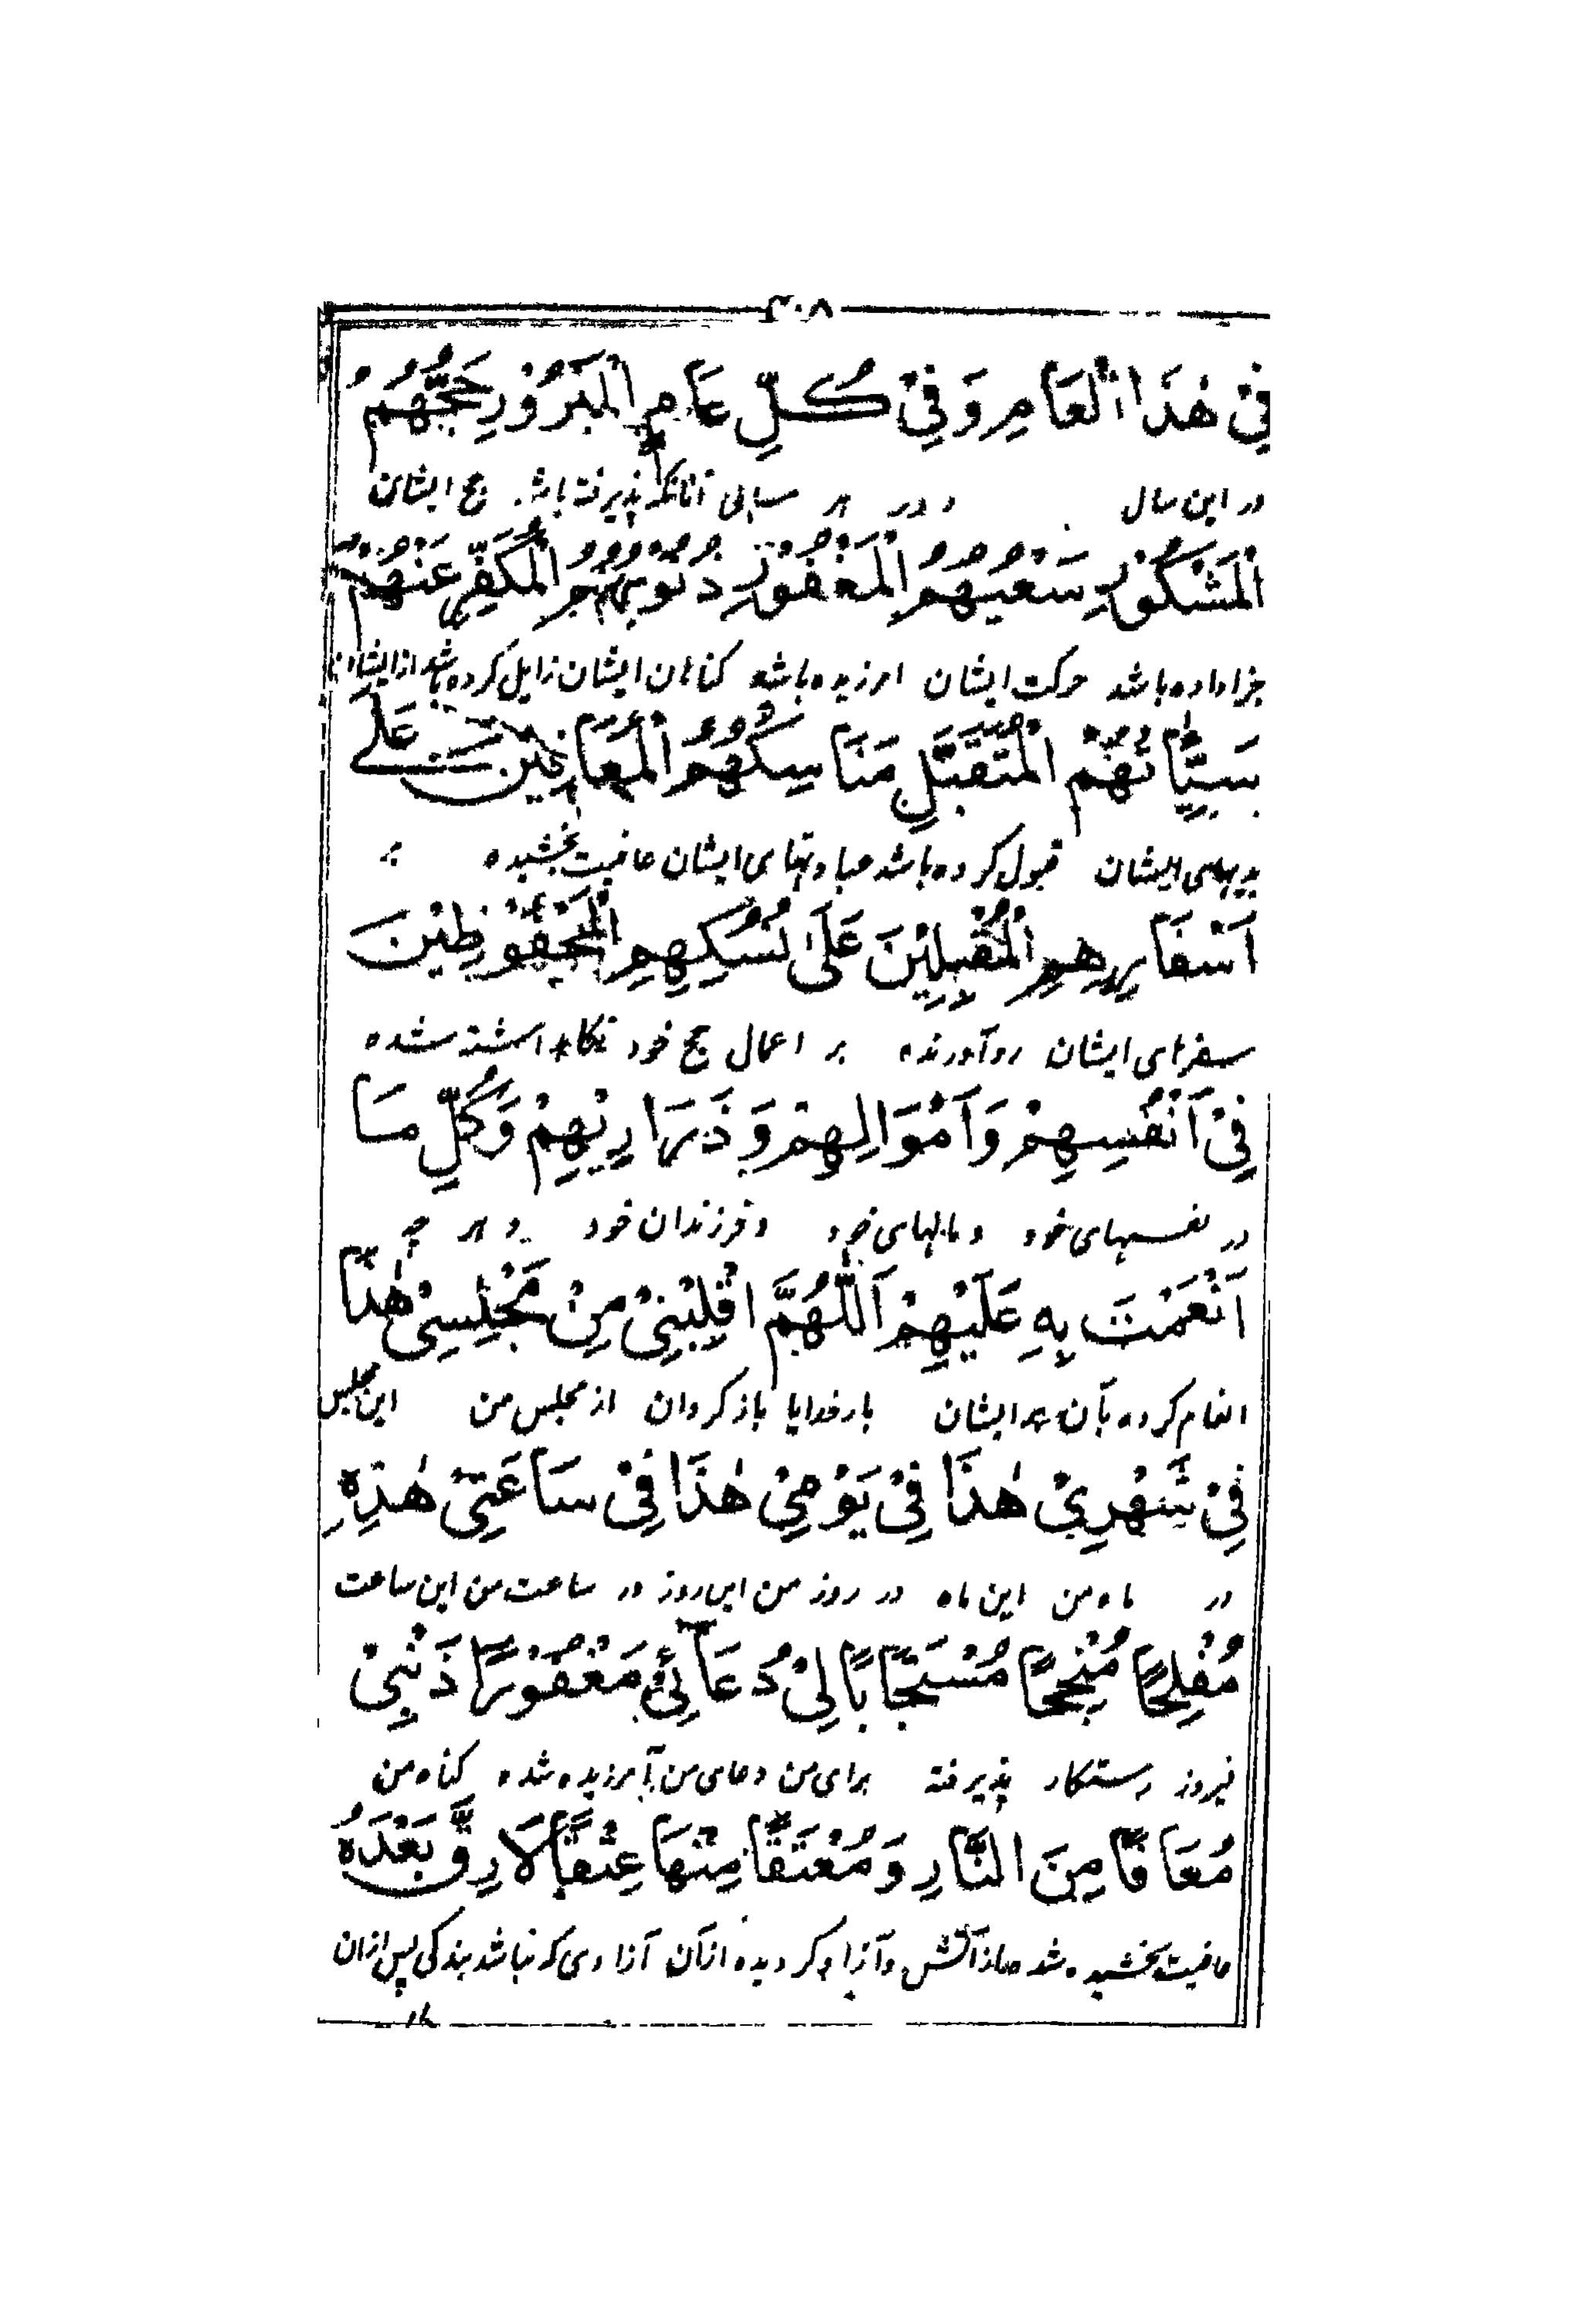 فِیْ هٰذَا الْعَامِ وَفِیْ كُلِّ عَامٍ الْمَبْرُوْرِ حَجُّهُمُ
در این سال و در هر سالی آنانکه پذیرفته باشد حج ایشان
الْمَشْكُوْرِ سَعْيُهُمُ الْمَغْفُوْرِ ذُنُوْبُهُمُ الْمُكَفَّرِ عَنْهُمْ
جزا داده باشد حرکت ایشان امرزیده باشد کناهان ایشان زایل کرده باشد از ایشان
سَيِّاٰتُهُمْ الْمُتَقَبَّلِ مَنَاسِكُهُمُ الْمُعَافِيْنَ عَلٰی
بدیهای ایشان قبول کرده باشد عبادتهای ایشان عافیت بخشیده بر
اَسْفَارِهِمِ الْمُقْبِلِيْنَ عَلٰی نُسُكِهِمِ الْمَحْفُوْظِيْنَ
سفرهای ایشان رو آورنده بر اعمال حج خود نکاهداشته شده
فِیْ اَنْفُسِهِمْ وَاَمْوَالِهِمْ وَذَرَارِيْهِمْ وَكُلِّ مَا
در نفسهای خود و مالهای خود و فرزندان خود و هر چه
اَنْعَمْتَ بِهٖ عَلَيْهِمْ اَللّٰهُمَّ اقْلِبْنِیْ مِنْ مَجْلِسِیْ هٰذَا
انعام کرده بآن بر ایشان بار خدایا باز کردان از مجلس من این مجلس
فِیْ شَهْرِیْ هٰذَا فِیْ يَوْمِیْ هٰذَا فِیْ سَاعَتِیْ هٰذِهٖ
در ماه من این ماه در روز من این روز در ساعت من این ساعت
مُفْلِحًا مُنْجِحًا مُسْتَجَابًا لِیْ دُعَائِیْ مَغْفُوْرًا ذَنْبِیْ
فیروز رستکار پذیرفته برای من دعای من آمرزیده شده کناه من
مُعَافًا مِنَ النَّارِ وَمُعْتَقًا مِنْهَا عِتْقًا لَا رِقَّ بَعْدَهٗ
عافیت بخشیده شده از آتش و آزاد کردیده از آن آزادی که نباشد بندکی پس ازان